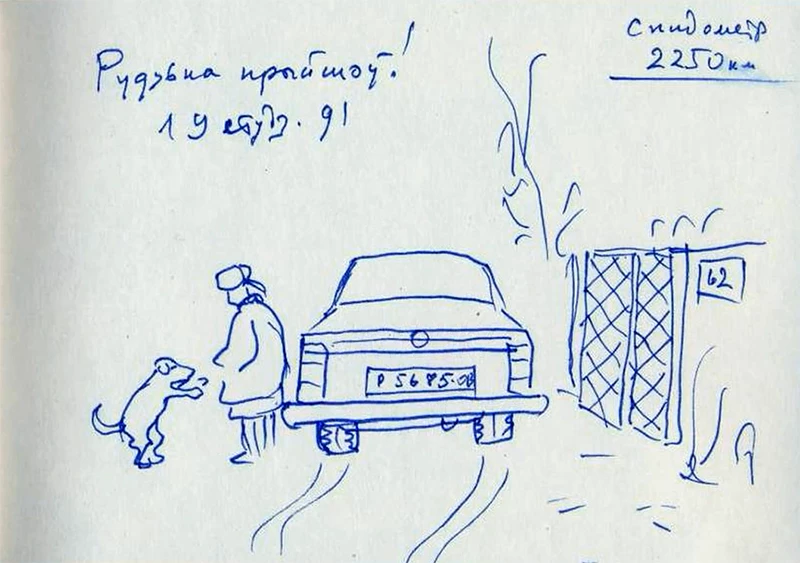 Рудзька прыйшоў!
19 студз. 91
Спидометр
2250 км
62
Р 5675·ОВ